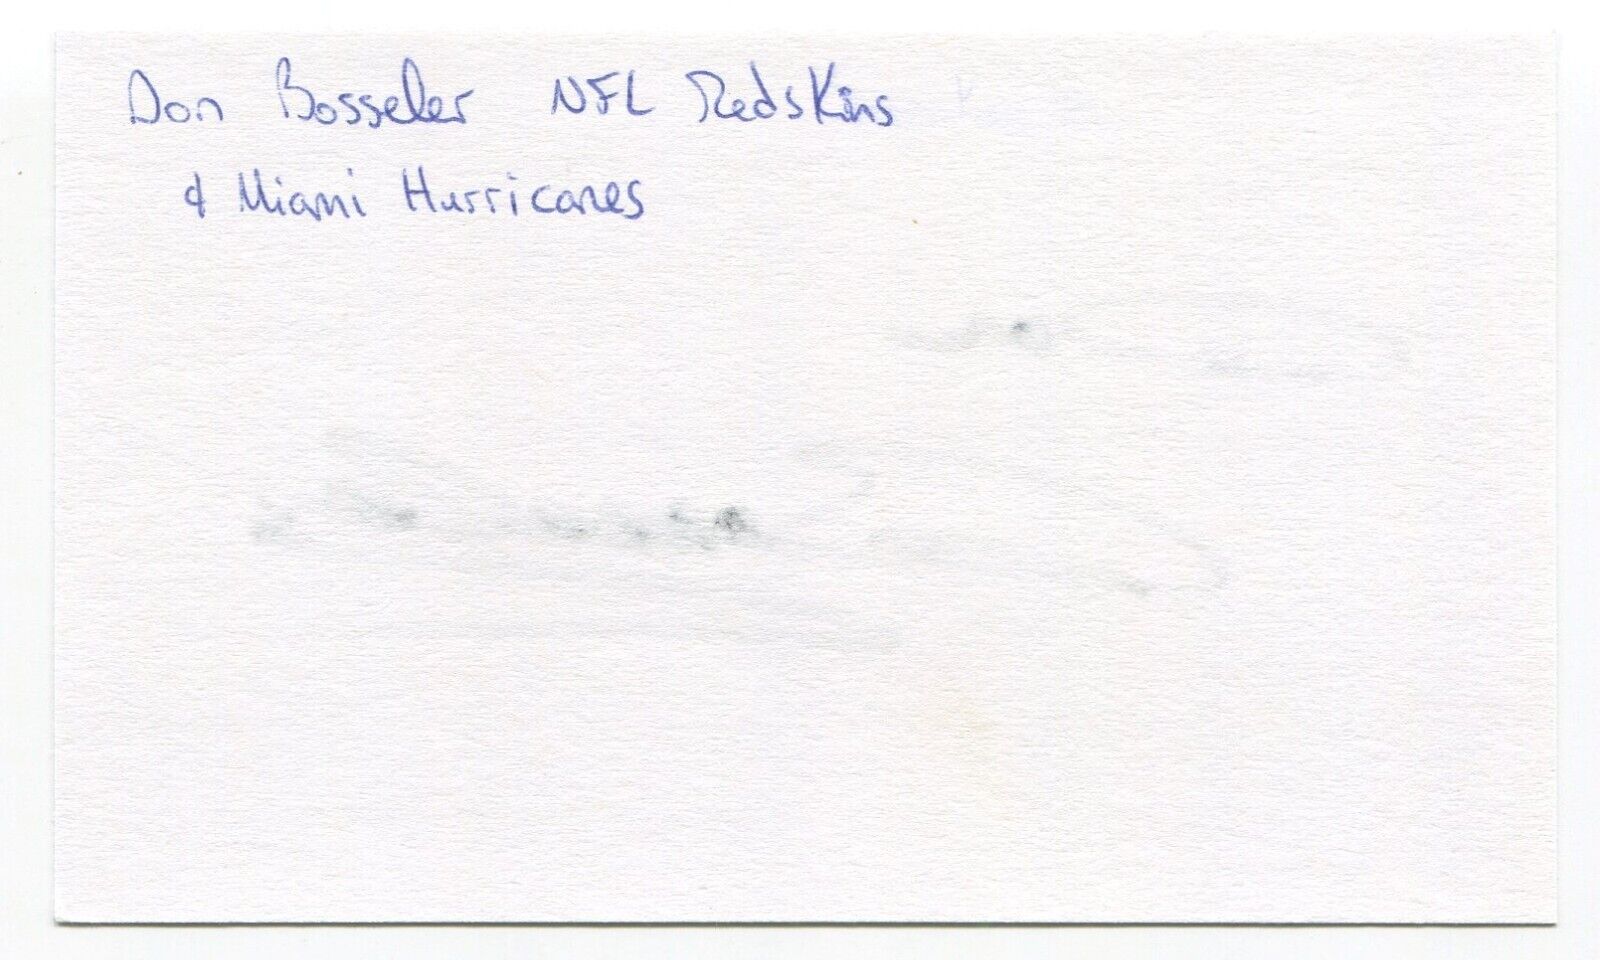 Don Bosseler NFL Redskins
& Miami Hurricanes